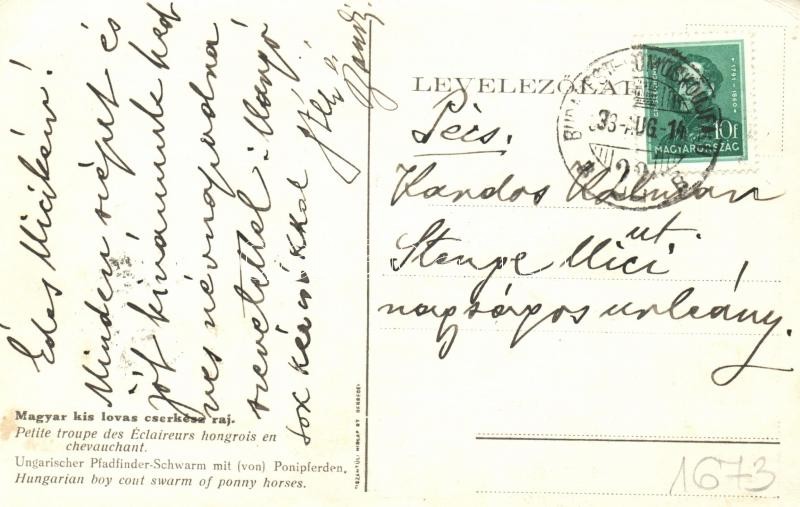 Édes Micikém!
Minden szépet és
jót kívánunk ked
ves névnapodra
szeretettel: Mangó
sok kézcsókkal
Magyar kis lovas cserkész raj.
Petite troupe des Éclaireurs hongrois en
chevauchant.
Ungarischer Pfadfinder-Schwarm mit (von) Ponipferden.
Hungarian boy cout swarm of ponny horses.
LEVELEZŐLAP
33-AUG-14
10f
MAGYARORSZÁG
1791-1860
Pécs.
Kandos Kálmán
ut.
Stenge Mici
nagyságos urleány.
1673